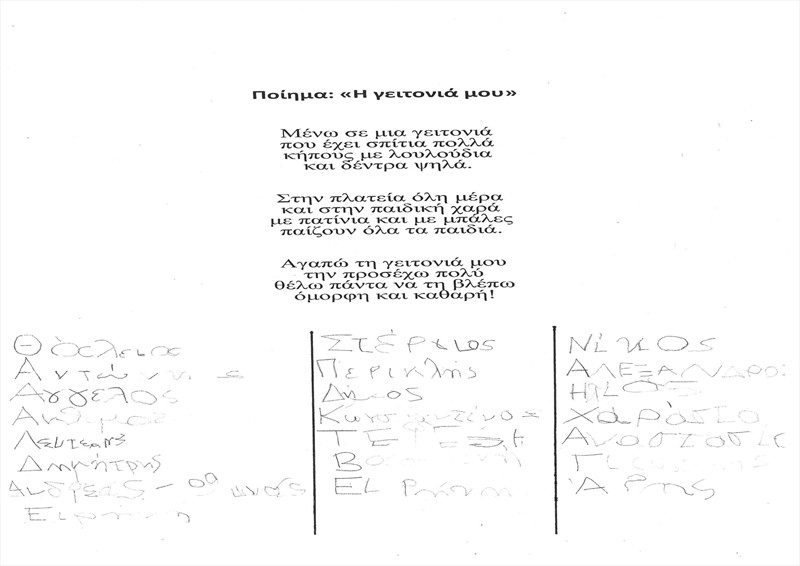 Ποίημα: «Η γειτονιά μου»
Μένω σε μια γειτονιά
που έχει σπίτια πολλά
κήπους με λουλούδια
και δέντρα ψηλά.
Στην πλατεία όλη μέρα
και στην παιδική χαρά
με πατίνια και με μπάλες
παίζουν όλα τα παιδιά.
Αγαπώ τη γειτονιά μου
την προσέχω πολύ
θέλω πάντα να τη βλέπω
όμορφη και καθαρή!
Θάλεια
Άγγελος
Λευτέρης
Δημήτρης
Ανδρέας - Θωμάς
Ειρήνη
Στέργιος
Περικλής
Δήμος
Κωνσταντίνος
Ειρήνη
Νίκος
ΑΛΕΞΑΝΔΡΟΣ
Άρης